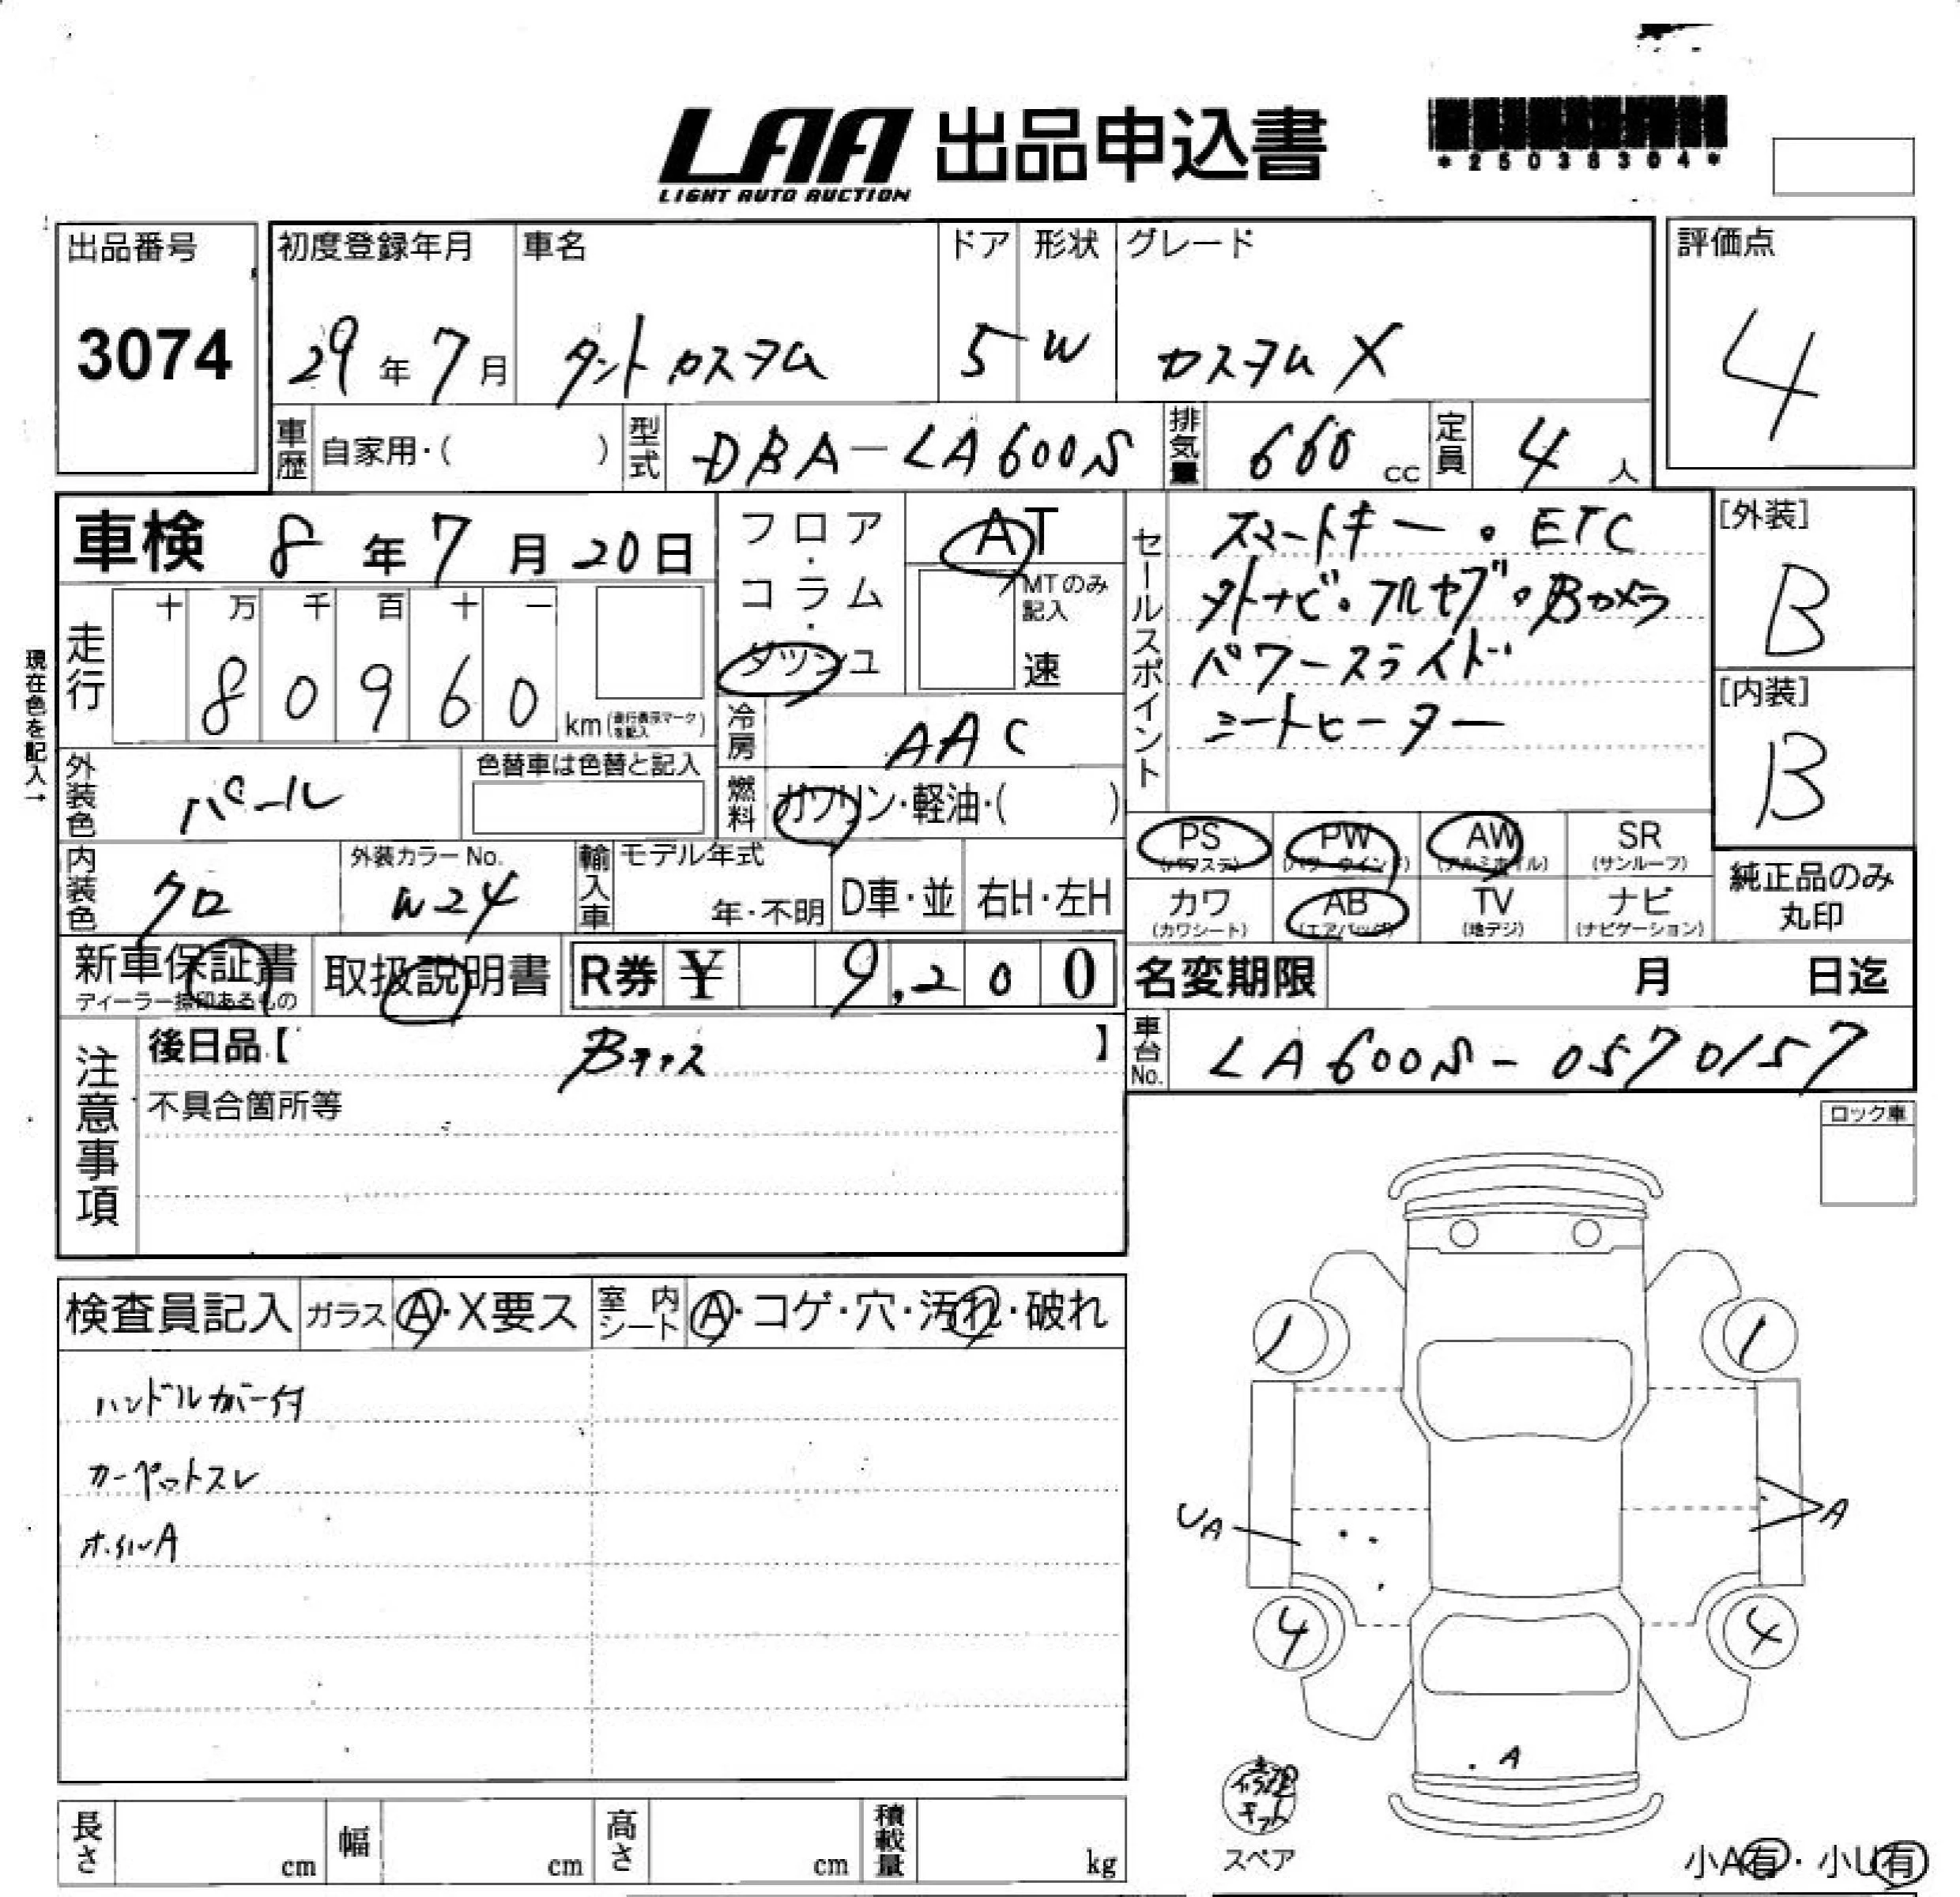 LAA 出品申込書
LIGHT AUTO AUCTION
*25038304*
出品番号
3074
初度登録年月
29年7月
車名
タントカスタム
ドア
5
形状
W
グレード
カスタムX
評価点
4
車歴
自家用・( )
型式
DBA-LA600S
排気量
660cc
定員
4人
車検 8年7月20日
フロア・コラム・ダッシュ
AT
MTのみ記入
速
現在色を記入→
走行
十 万 千 百 十 一
8 0 9 6 0 km(走行表示マークを記入)
冷房
AAC
燃料
ガソリン・軽油・( )
外装色
パール
色替車は色替と記入
内装色
クロ
外装カラーNo.
W24
輸入車
モデル年式
年・不明
D車・並
右H・左H
セールスポイント
スマートキー・ETC
外ナビ・フルセグ・Bカメラ
パワースライド
シートヒーター
[外装]
B
[内装]
B
PS
(パワステ)
PW
(パワーウインド)
AW
(アルミホイル)
SR
(サンルーフ)
カワ
(カワシート)
AB
(エアバッグ)
TV
(地デジ)
ナビ
(ナビゲーション)
純正品のみ
丸印
新車保証書
ディーラー捺印あるもの
取扱説明書
R券 ¥ 9,200
名変期限 月 日迄
車台No.
LA600S-0570157
注意事項
後日品【 】
不具合箇所等
ロック車
検査員記入
ガラス
A・X要ス
室内シート
A・コゲ・穴・汚れ・破れ
ハンドルカバー付
カーペットスレ
ホイルA
1 1
UA
A
4 4
A
スペア
小A有・小U有
長さ cm
幅 cm
高さ cm
積載量 kg